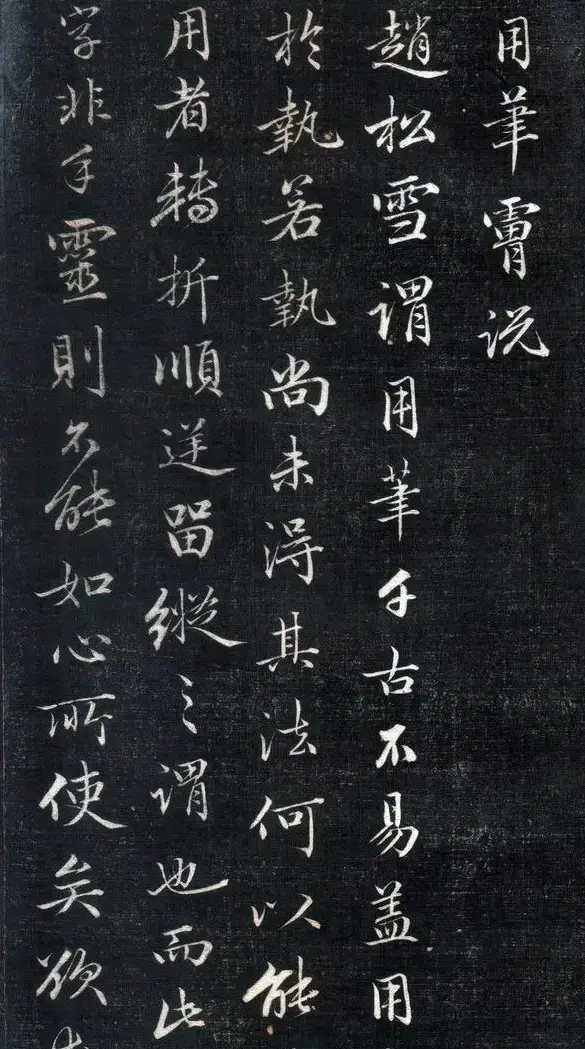 用筆實說
趙松雪謂用筆千古不易蓋用
於執若執尚未得其法何以能
用者轉折順逆留縱之謂也而此
字非手靈則不能如心所使矣欲